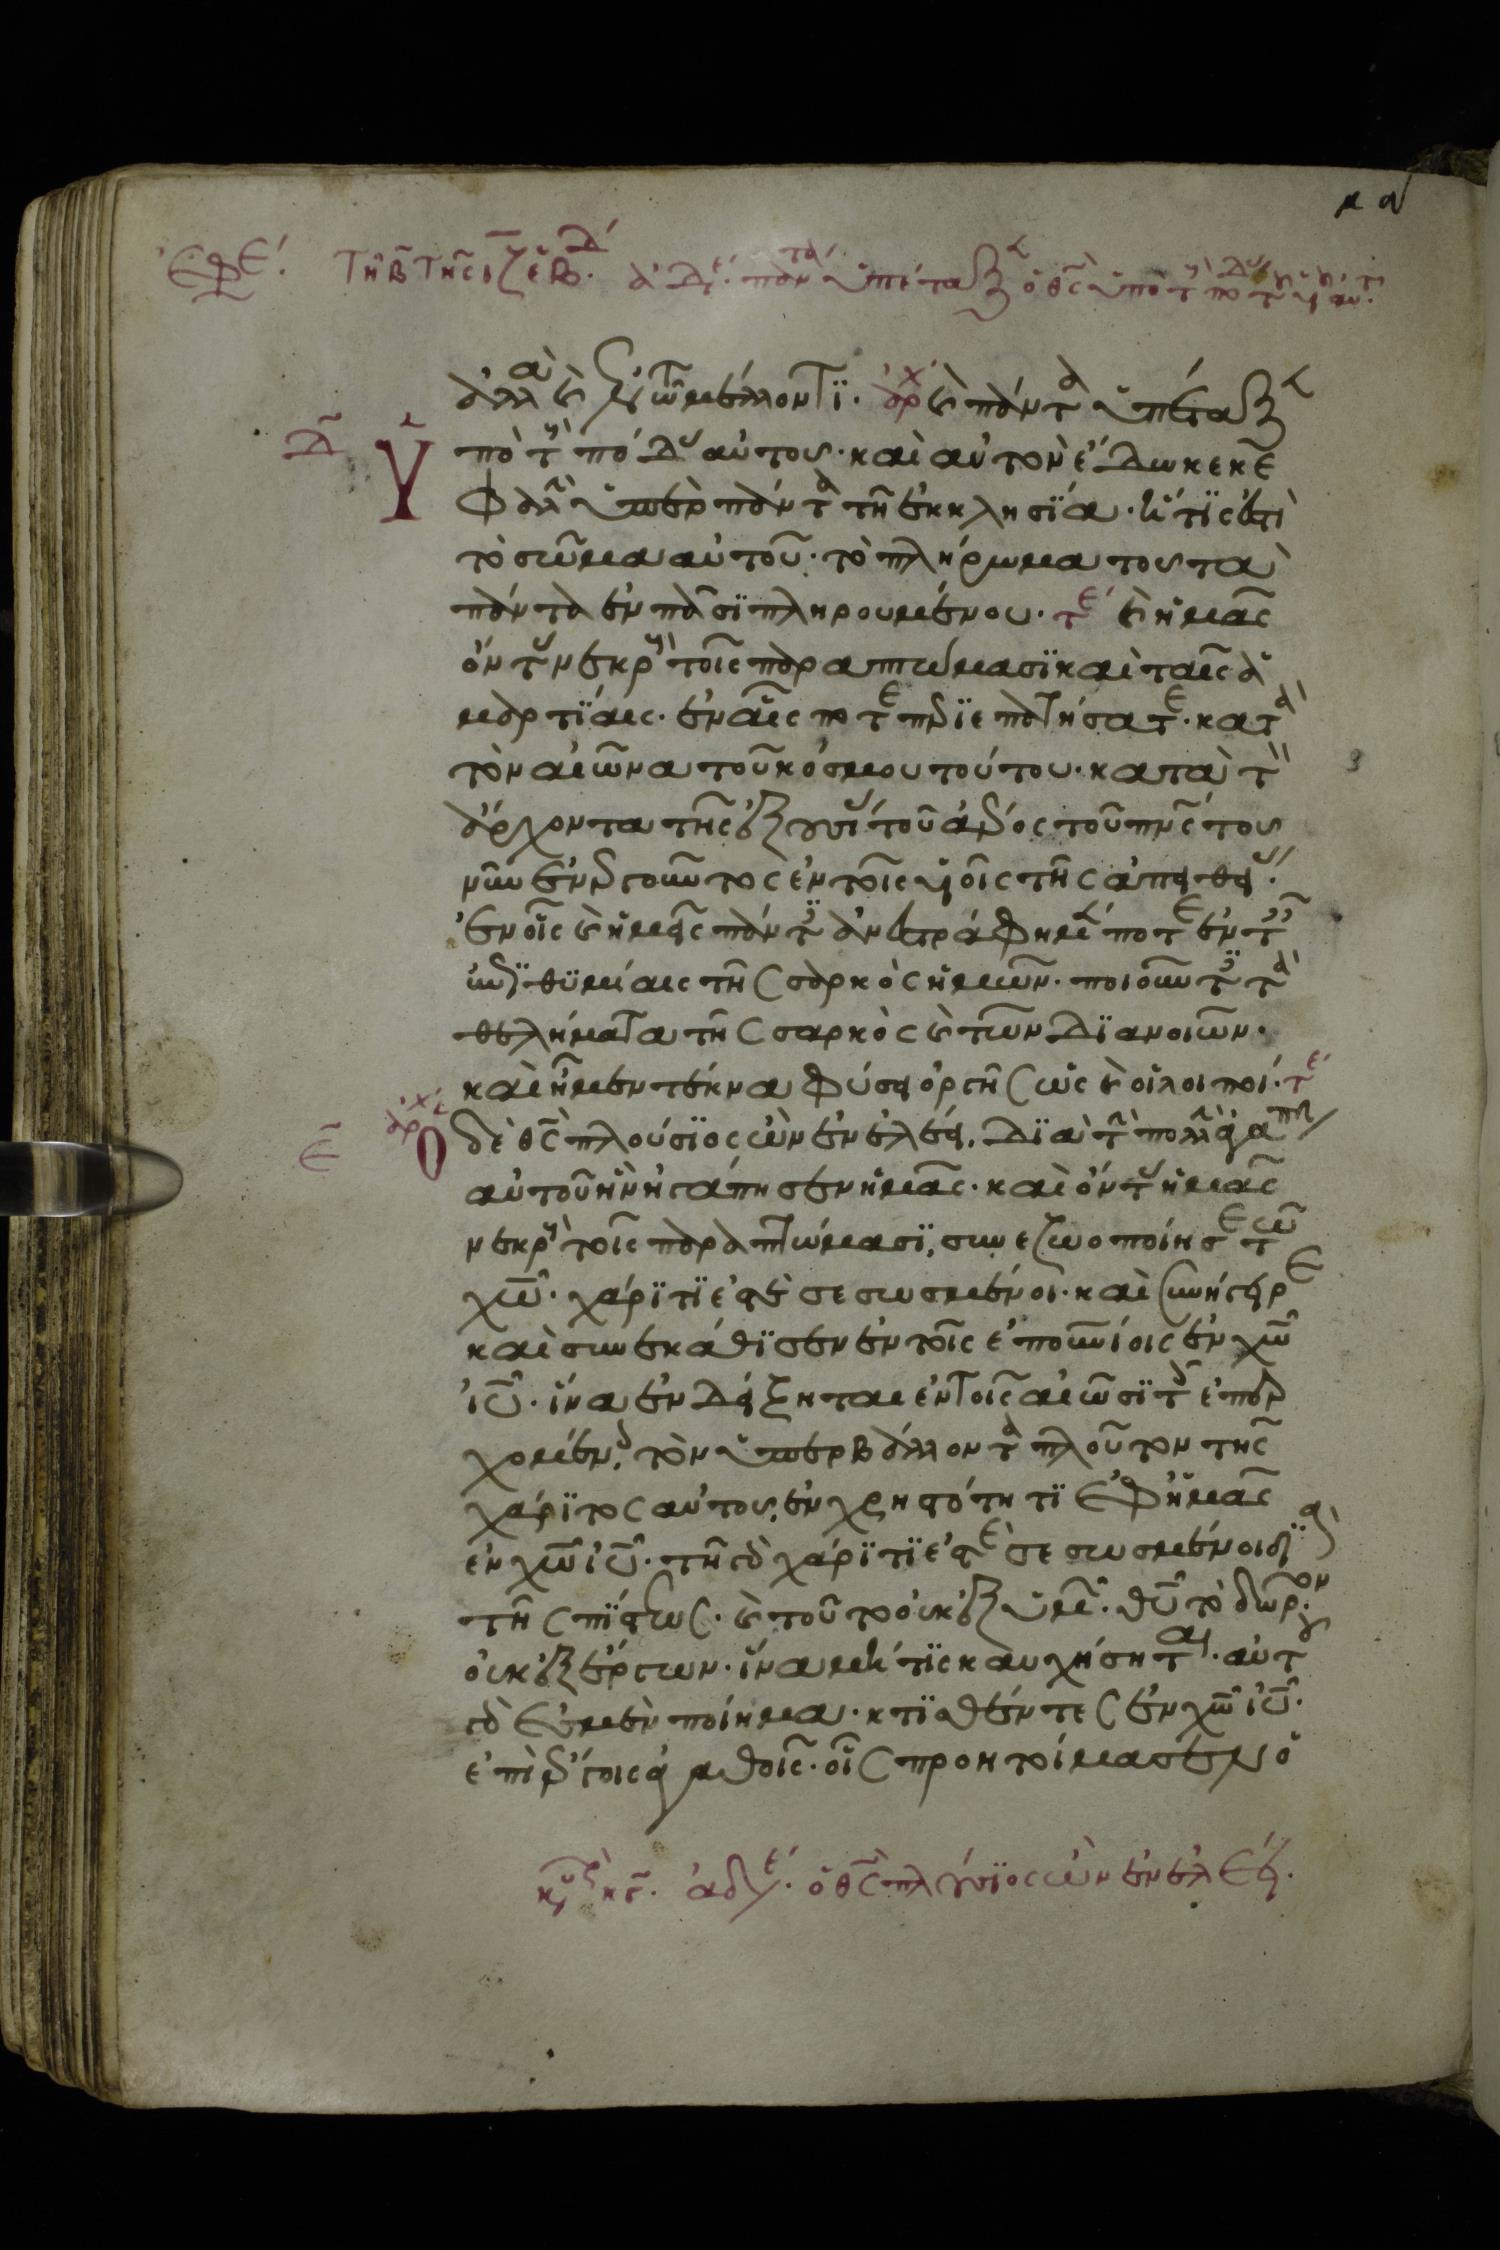 μ α
ἐφε´. Τῇ β τῆς ιζ ἑβδ. ἀδελφοί. πάντα ὑπέταξεν ὁ θς ὑπὸ τοὺς πόδ
ἀλλὰ καὶ ἐν τῶ μέλλοντϊ. ἀρχ καὶ πάντα ὑπέταξεν
Δ Ὑπὸ τοὺς πόδας αὐτοῦ. καὶ αὐτὸν ἔδωκε κε
φαλὴν ὑπὲρ πάντα τῆ ἐκκλησϊα. ἥτις ἐστὶ
τὸ σῶμα αὐτοῦ. τὸ πλήρωμα τοῦ τὰ
πάντα ἐν πᾶσϊ πληρουμένου. τε καὶ ὑμᾶς
ὄντας νεκροὺς τοῖς παραπτώμασϊ καὶ ταῖς ἁ
μαρτίαις. ἐν αἷς ποτὲ περιεπατήσατε. κατὰ
τὸν αἰῶνα τοῦ κόσμου τούτου. κατὰ τὸν
ἄρχοντα τῆς ἐξουσίας τοῦ ἀέρος τοῦ πνς τοῦ
νῦν ἐνεργοῦντος ἐν τοῖς υἱοῖς τῆς ἀπειθείας.
ἐν οἷς καὶ ἡμεῖς πάντες ἀνεστράφημεν ποτὲ ἐν ταῖς
ἐπιθϋμίαις τῆς σαρκὸς ἡμῶν. ποιοῦντες τὰ
θελήματα τῆς σαρκὸς καὶ τῶν διανοιῶν.
καὶ ἦμεν τέκνα φύσει ὀργῆς ὡς καὶ οἱ λοιποί. τε
Ε ἀρχ Ὁ δὲ θς πλούσϊος ὢν ἐν ἐλέει. διὰ τὴν πολλὴν ἀγάπην
αὐτοῦ ἣν ἠγάπησεν ἡμᾶς. καὶ ὄντας ἡμᾶς
νεκροὺς τοῖς παραπτώμασϊ, συνεζωοποίησε τῶ
χω. χάρϊτί ἐστε σεσωσμένοι. καὶ συνήγειρε
καὶ συνεκάθϊσεν ἐν τοῖς ἐπουνίοις ἐν χω
ιυ. ἵνα ἐνδείξηται ἐν τοῖς αἰῶσϊ τοῖς ἐπερ
χομένοις, τὸν ὑπερβάλλοντα πλοῦτον τῆς
χάρϊτος αὐτοῦ, ἐν χρηστότητϊ ἐφ ἡμᾶς
ἐν χω ιυ. τῆ γὰρ χάρϊτί ἐστε σεσωσμένοι διὰ
τῆς πίστεως. καὶ τοῦτο οὐκ ἐξ ὑμῶν. θυ τὸ δῶρον.
οὐκ ἐξ ἔργων. ἵνα μή τϊς καυχήσηται. αὐτοῦ
γὰρ ἐσμὲν ποίημα. κτϊσθέντες ἐν χω ιυ.
ἐπὶ ἔργοις ἀγαθοῖς. οἷς προητοίμασεν ὁ
κυ κς. ἀδελφοί. ὁ θς πλούσϊος ὢν ἐν ἐλέει.